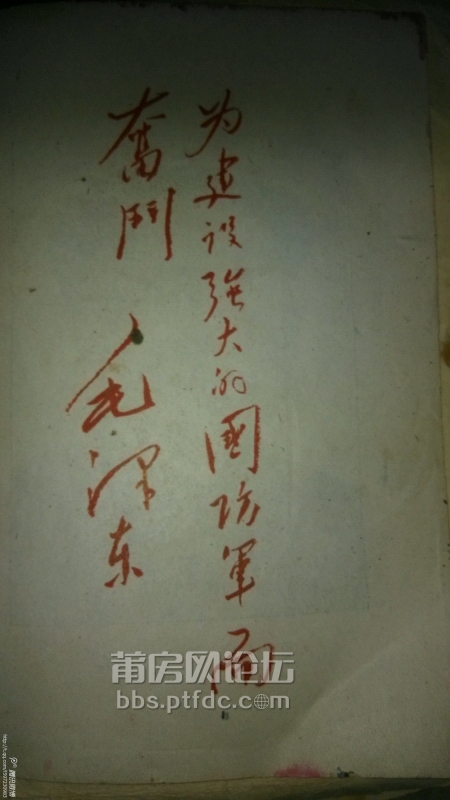 为建设强大的國防軍而
奮鬥
毛泽东
莆房网论坛
bbs.ptfdc.com